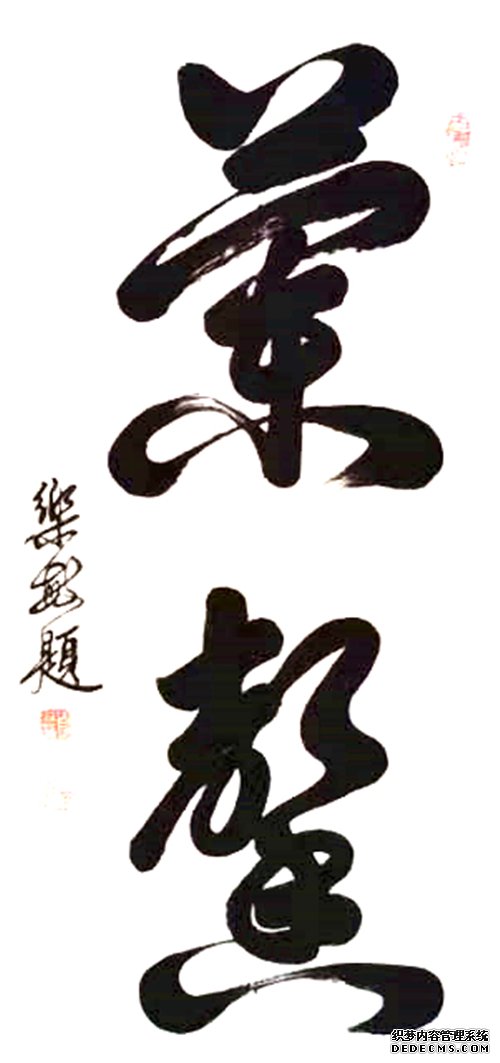 蘭馨
樂 題
织梦内容管理系统
DEDECMS.COM